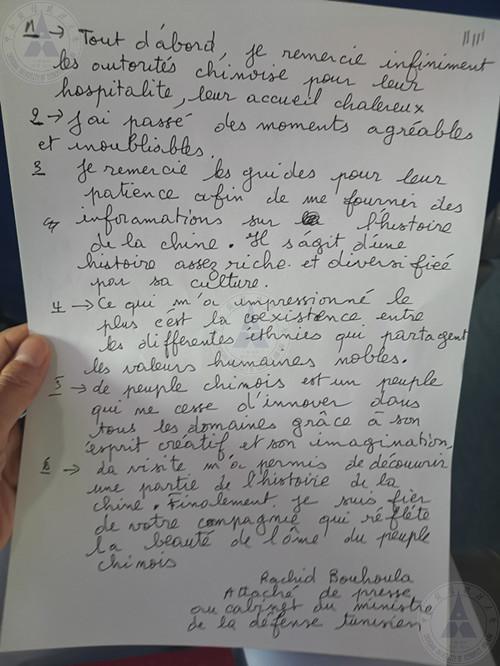 1 → Tout d'abord, je remercie infiniment
les autorités chinoise pour leur
hospitalité, leur accueil chalereux
2 → J'ai passé des moments agréables
et inoubliables.
3 Je remercie les guides pour leur
patience afin de me fournir des
inforamations sur l'histoire
de la chine. Il s'agit d'une
histoire assez riche et diversifieé
par sa culture.
4 → Ce qui m'a impressionné le
plus c'est la coexistence entre
les differentes ethnies qui partagent
les valeurs humaines nobles.
5 → Le peuple chinois est un peuple
qui ne cesse d'innover dans
tous les domaines grâce à son
esprit créatif et son imagination,
6 → La visite m'a permis de découvrir
une partie de l'histoire de la
chine. Finalement je suis fier
de votre compagnie qui réflète
la beauté de l'âme du peuple
chinois
Rachid Bouhoula
Attaché de presse
au cabinet du ministre
de la défense tunisien